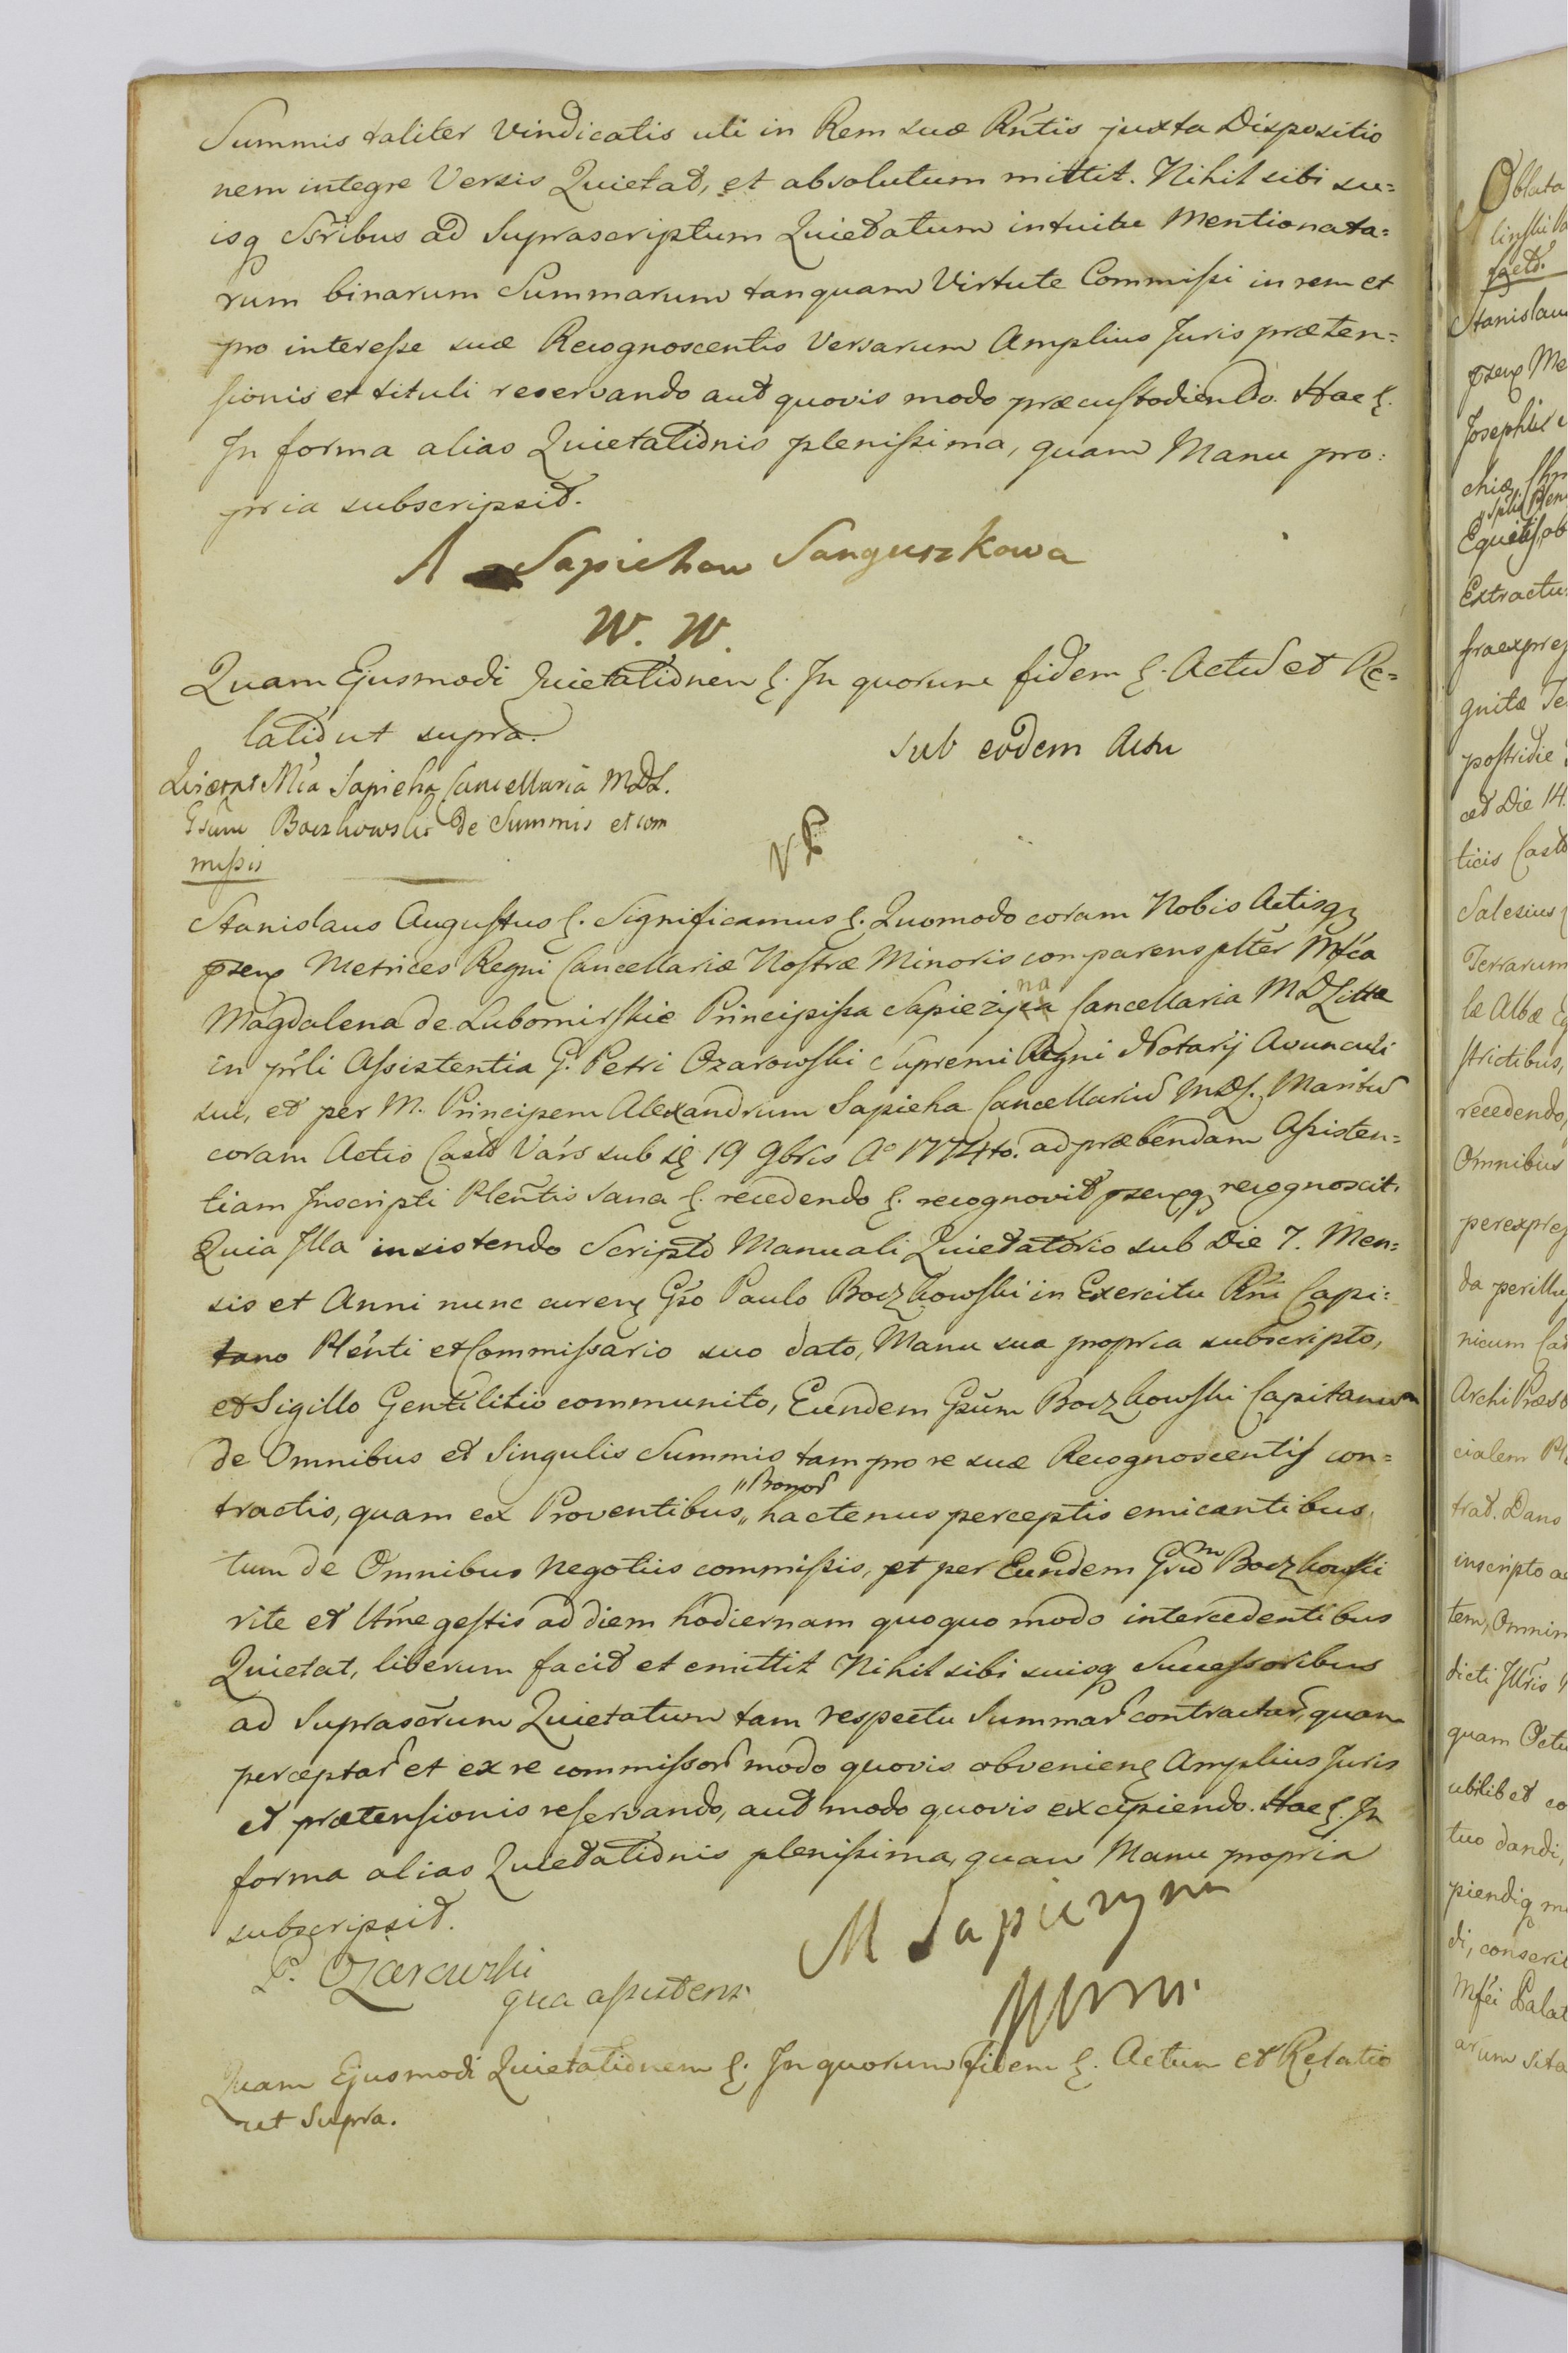 Summis taliter Vindicatis uti in Rem suæ Rńtis juxta Dispositio
nem integre Versis Quietat, et absolutum mittit. Nihil sibi su=
isq ad Suprascriptum Quietatum intuitu Mentionata=
rum binarum Summarum tanquam Virtute Commissi in rem et
pro interesse suæ Recognoscentis Versarum Amplius Juris præten=
sionis et tituli reservando aut quovis modo præcustodiendo. Hac
In forma alias Quietationis plenissima, quam Manu pro:
pria subscripsit.
A Sapiehow Sanguszkowa
W. W.
Quam Ejusmodi Quietationem In quorum fidem Actu et Re=
latio ut supra.
sub eodem Actu
Quietat Mća Sapieha Cancellaria MDL.
Gsum Boczkowski de Summis et com
missis
Stanislaus Augustus Significamus Quomodo coram Nobis Actisq
Metrices Regni Cancellariæ Nostræ Minoris comparens plter Mfca
Magdalena de Lubomirskie Principissa Sapiezyna Cancellaria MDLittæ
in pńli Assistentia G. Petri Ozarowski Supremi Regni Notarij Avunculi
sui, et per M. Principem Alexandrum Sapieha Cancellariu MDL. Maritu
coram Actis Castr Varś sub 19 9bris Aº 1774to. ad præbendam Assisten=
tiam Inscripti Pleńtis sana recedendo recognovit recognoscit.
Quia Illa insistendo Scripto Manuali Quietatorio sub Die 7. Men=
sis et Anni nunc curen Gso Paulo Boczkowski in Exercitu Rńi Capi=
tano Pleńti et Commissario suo dato, Manu sua propria subscripto,
et Sigillo Gentilitio communito, Eundem Gsum Boczkowski Capitanum
de Omnibus et Singulis Summis tam pro re suæ Recognoscentis con=
tractis, quam ex Proventibus „Bonor„ hactenus perceptis emicantibus,
tum de Omnibus Negotiis commissis, et per Eundem Gsum Boczkowski
rite et gestis ad diem hodiernam quoquo modo intercedentibus
Quietat, liberum facit et emittit Nihil sibi suisq Successoribus
ad Suprascrum Quietatum tam respectu Summar contractar, quam
perceptar et ex re commissor modo quovis obvenien Amplius Juris
et prætensionis reservando, aut modo quovis excipiendo. Hac In
forma alias Quietationis plenissima, quam Manu propria
subscripsit.
M Sapiezyna
P. Ozarowski
qua assistens
Quam Ejusmodi Quietationem In quorum fidem Actum et Relatio
ut Supra.
Oblata
Stanislau
Josephi
Extractu
postridie
Salesius
Terrarum
recedendo,
Omnibus
inscripto
dandi,